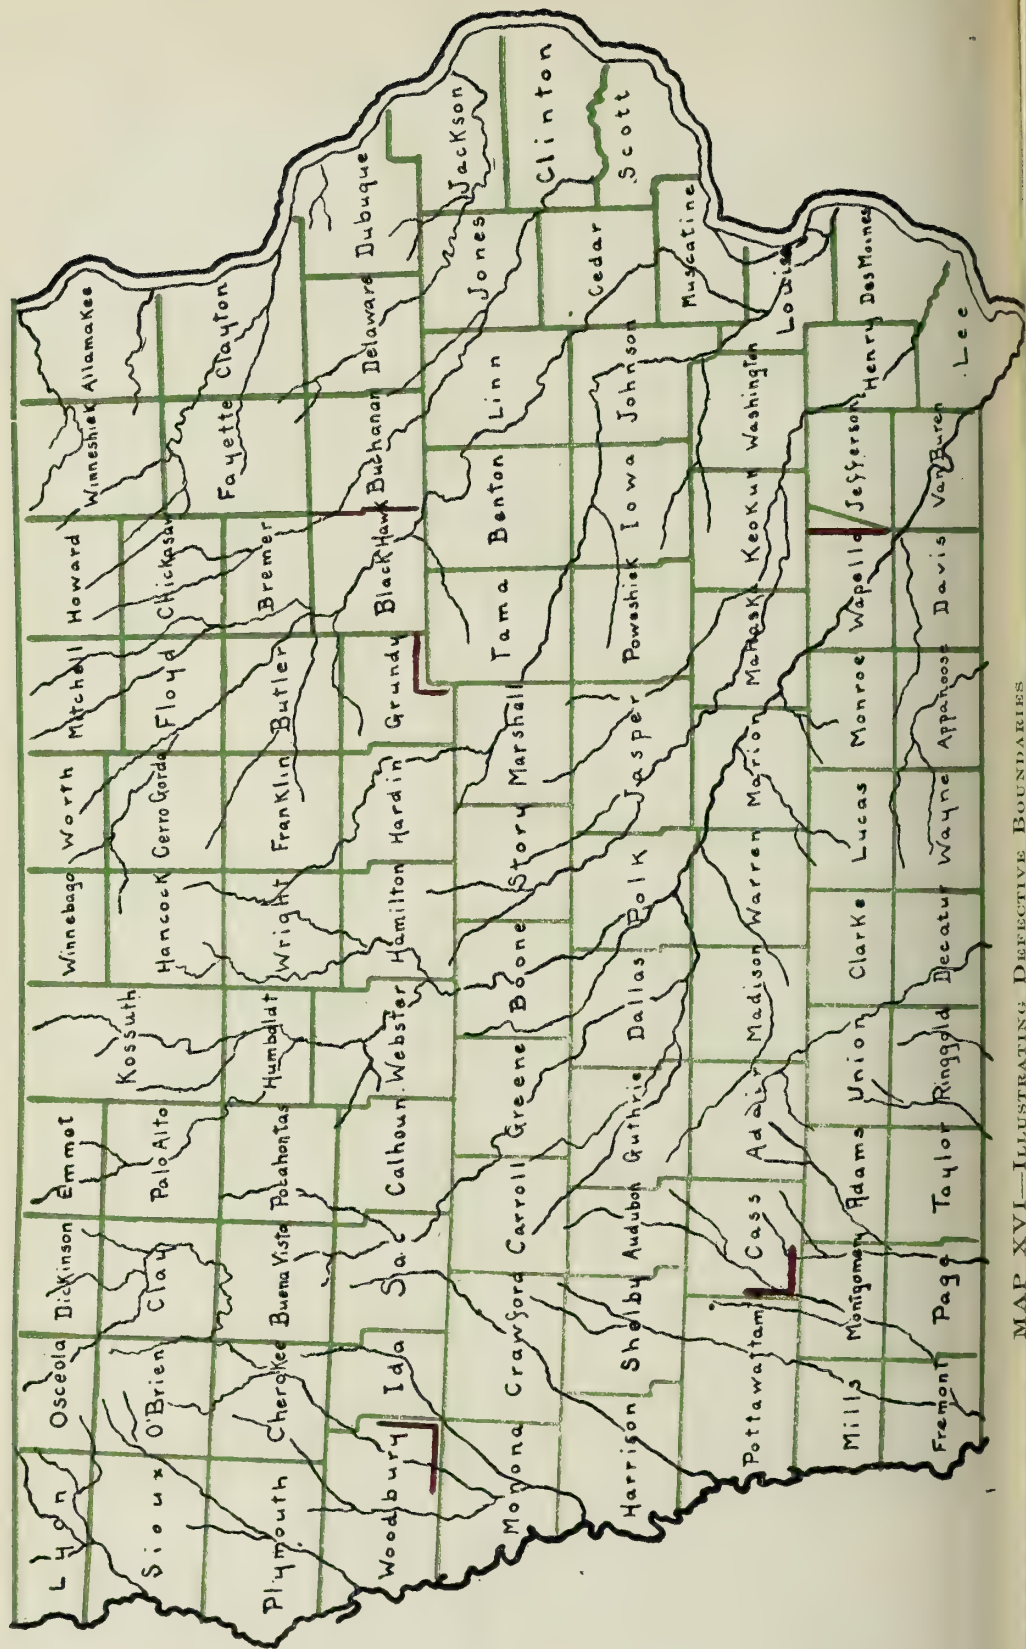 Lyon
Osceola
Dickinson
Emmet
Kossuth
Winnebago
Worth
Mitchell
Howard
Winneshiek
Allamakee
Sioux
O'Brien
Clay
Palo Alto
Hancock
Cerro Gordo
Floyd
Chickasaw
Fayette
Clayton
Plymouth
Cherokee
Buena Vista
Pocahontas
Humboldt
Wright
Franklin
Butler
Bremer
Woodbury
Ida
Sac
Calhoun
Webster
Hamilton
Hardin
Grundy
Black Hawk
Buchanan
Delaware
Dubuque
Monona
Crawford
Carroll
Greene
Boone
Story
Marshall
Tama
Benton
Linn
Jones
Jackson
Clinton
Harrison
Shelby
Audubon
Guthrie
Dallas
Polk
Jasper
Poweshiek
Iowa
Johnson
Cedar
Scott
Muscatine
Pottawattam
Cass
Adair
Madison
Warren
Marion
Mahaska
Keokuk
Washington
Louisa
Mills
Montgomery
Adams
Union
Clarke
Lucas
Monroe
Wapello
Jefferson
Henry
Des Moines
Fremont
Page
Taylor
Ringgold
Decatur
Wayne
Appanoose
Davis
Van Buren
Lee
MAP XVI—ILLUSTRATING DEFECTIVE BOUNDARIES